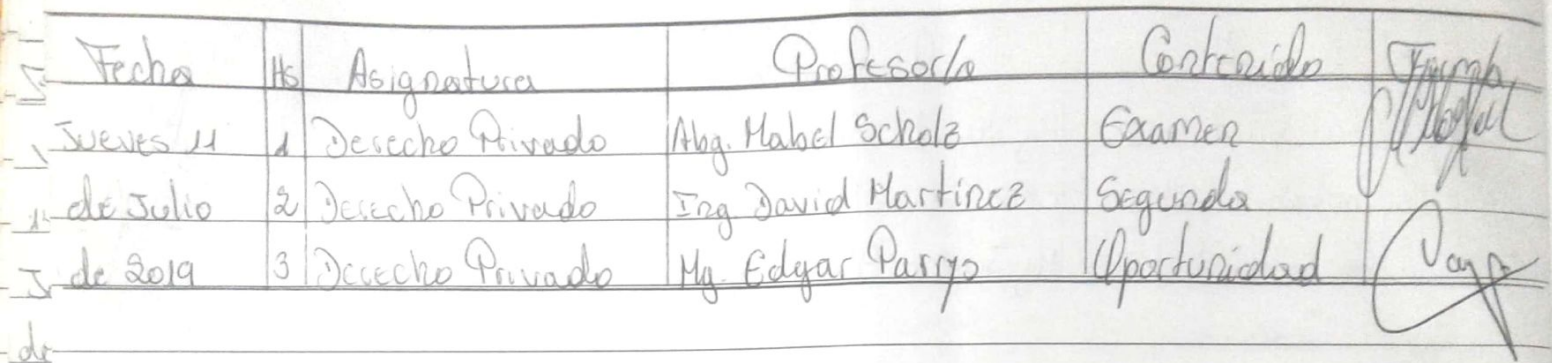 Fecha Hs Asignatura Profesor/a Contenido Firma
Jueves 11 1 Derecho Privado Abg. Mabel Scholz Examen
de Julio 2 Derecho Privado Ing David Martinez Segunda
de 2019 3 Derecho Privado Mg. Edgar Parryo Oportunidad
de